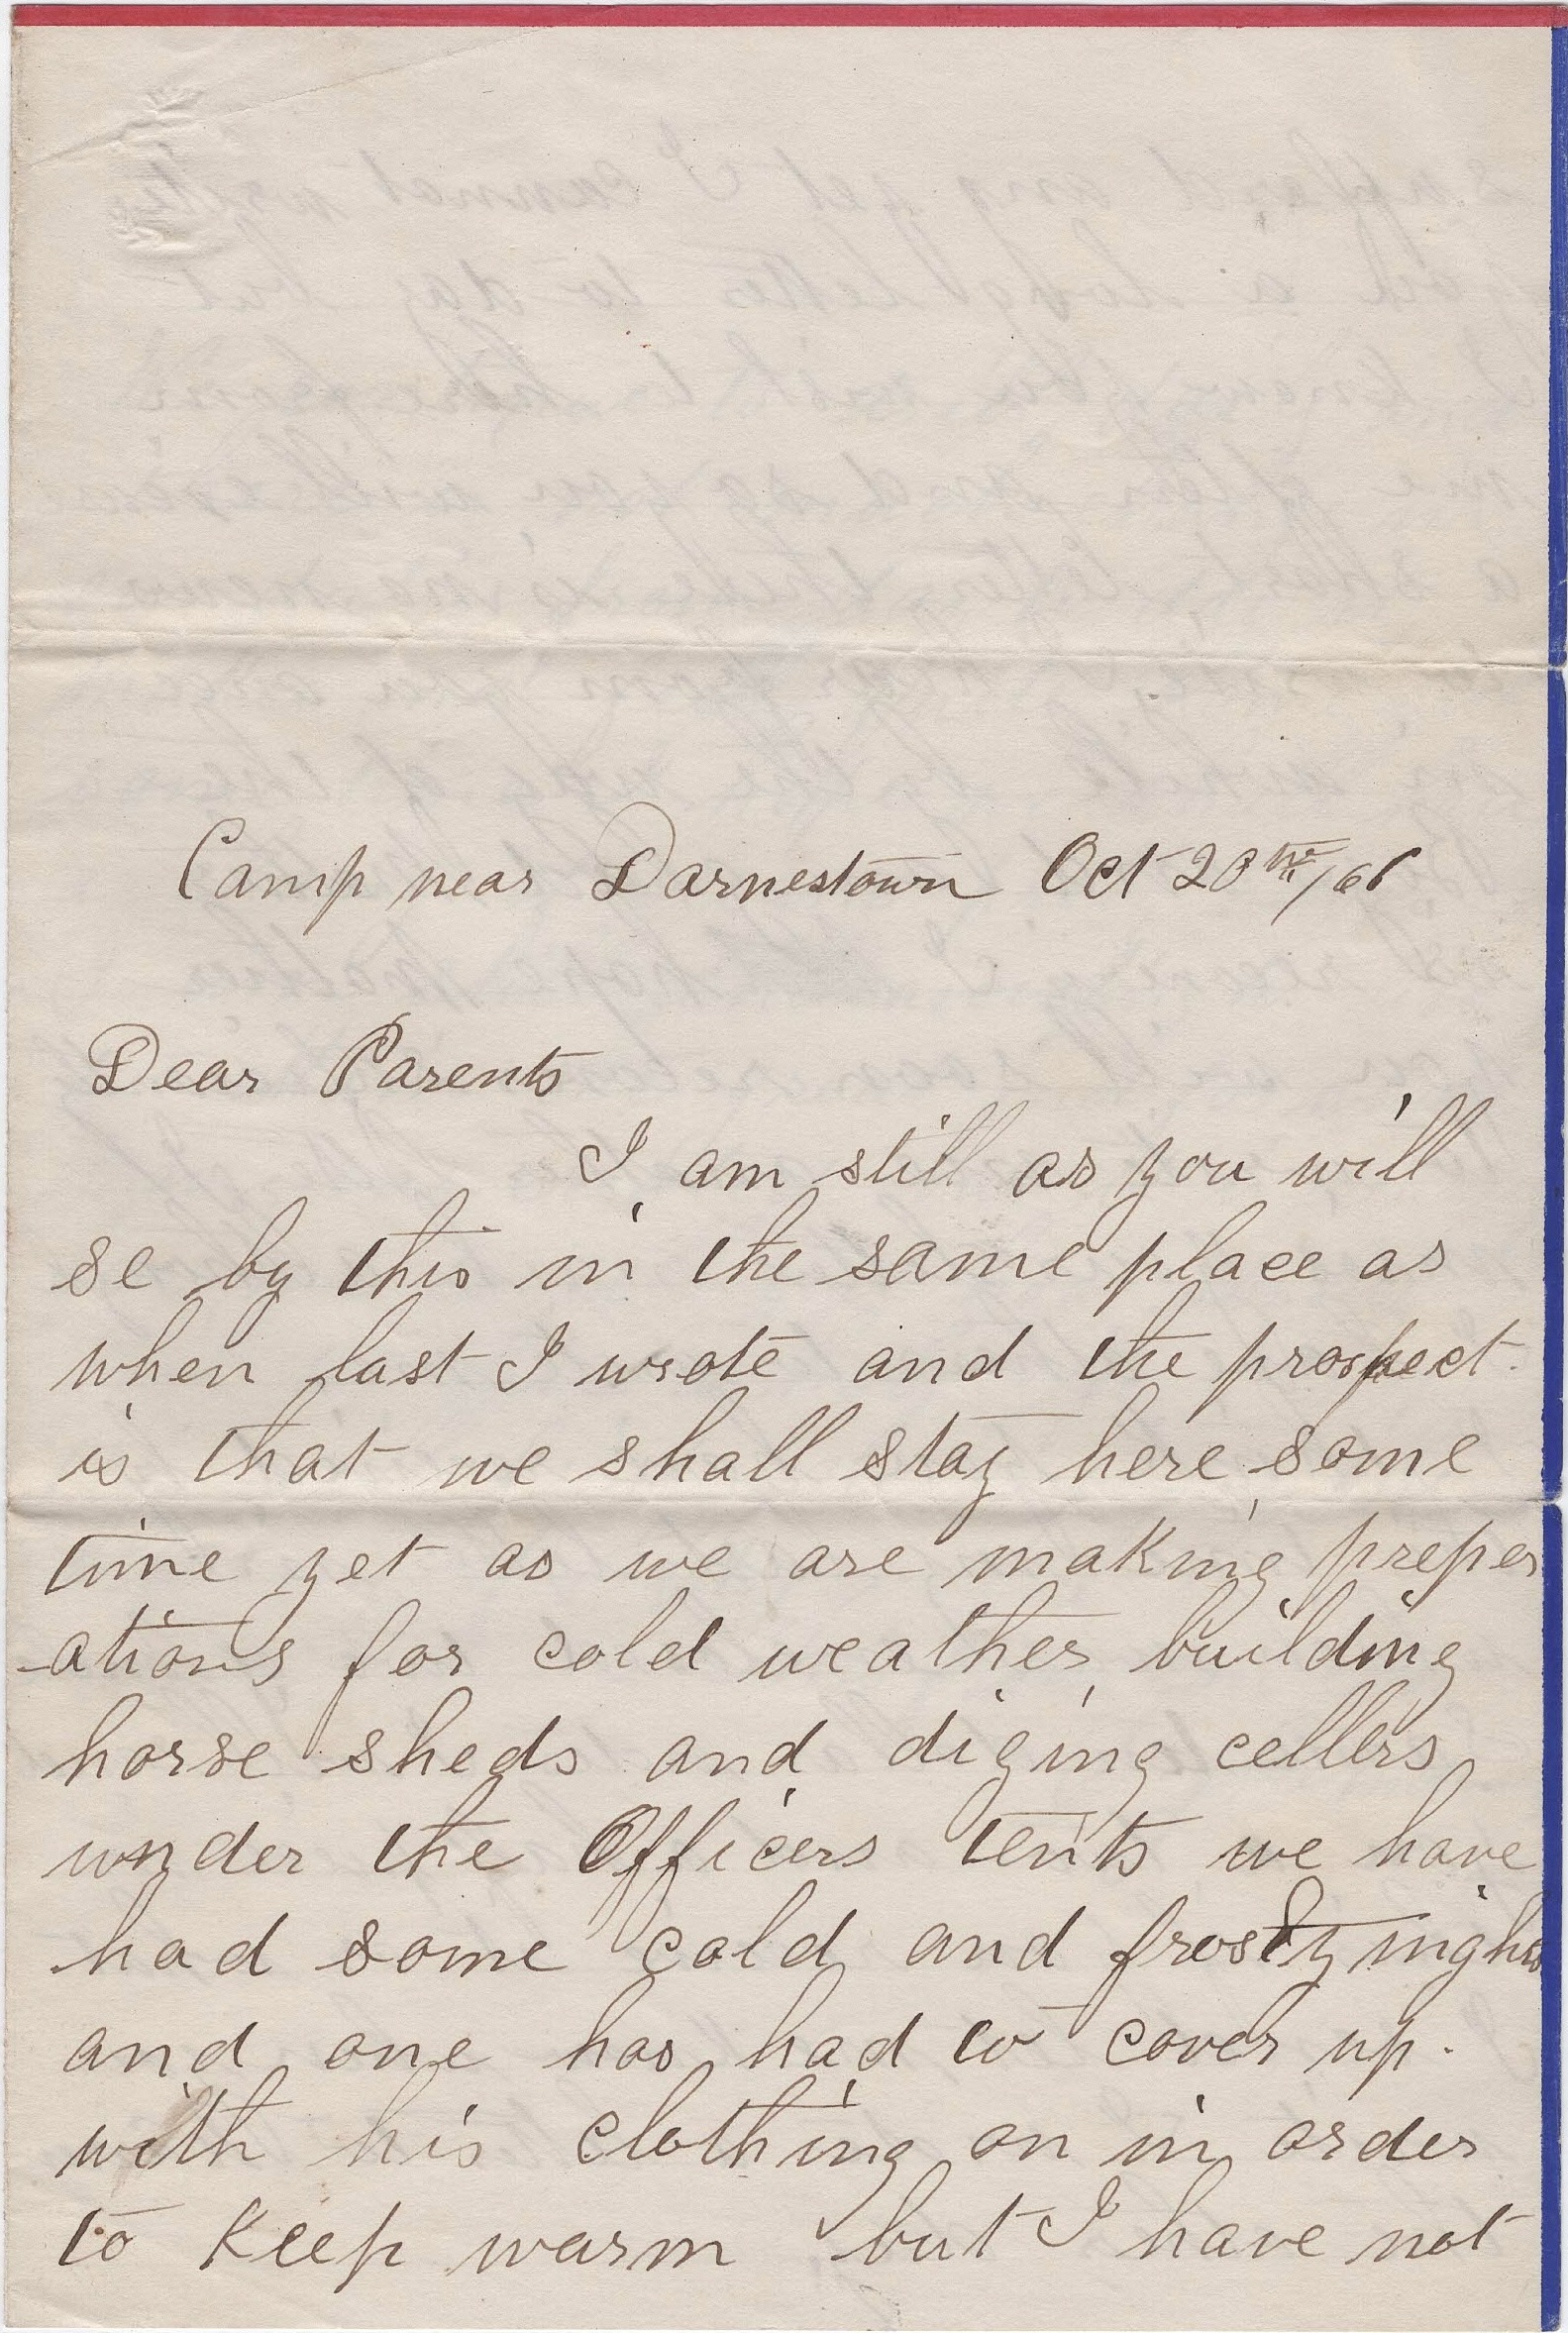 Camp near Darnestown Oct 20th/61
Dear Parents
I am still as you will
se by this in the same place as
when last I wrote and the prospect
is that we shall stay here some
time yet as we are making preper
-ations for cold weather building
horse sheds and diging cellers
under the Officers tents we have
had some cold and frosty nights
and one has had to cover up
with his clothing on in order
to keep warm but I have not